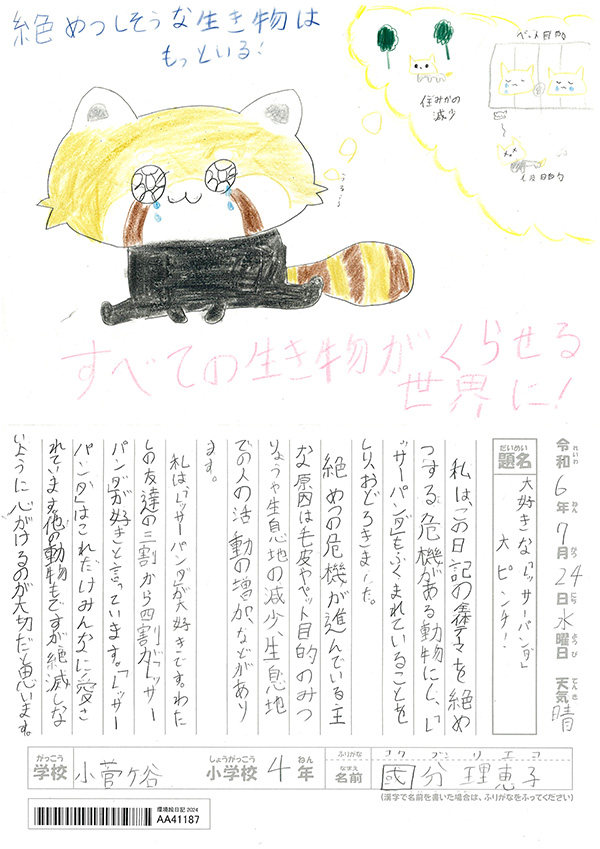 絶めつしそうな生き物は
もっといる!
ペット目的
住みかの
減少
うるうる
すべての生き物がくらせる
世界に!
令和6年7月24日水曜日 天気晴
れいわ ねん がつ にち ようび てんき
だいめい
題名
大好きな「レッサーパンダ」
大ピンチ!
私は、この日記のテーマを絶め
つする危機がある動物にし、「レ
ッサーパンダ」もふくまれていることを
しり、おどろきました。
絶めつの危機が進んでいる主
な原因は毛皮やペット目的のみつ
りょうや生息地の減少、生息地
での人の活動の増加、などがあり
ます。
私は、「レッサーパンダ」が大好きです。わた
しの友達の三割から四割が「レッサー
パンダ」が好きと言っています。「レッサー
パンダ」はこれだけみんなに愛さ
れています。他の動物もですが絶滅しな
いように心がけるのが大切だと思います。
がっこう
学校 小菅ケ谷
しょうがっこう ねん
小学校 4年
ふりがな コクブ リエコ
なまえ
名前 国分理恵子
(漢字で名前を書いた場合は、ふりがなをふってください)
環境絵日記2024
AA41187